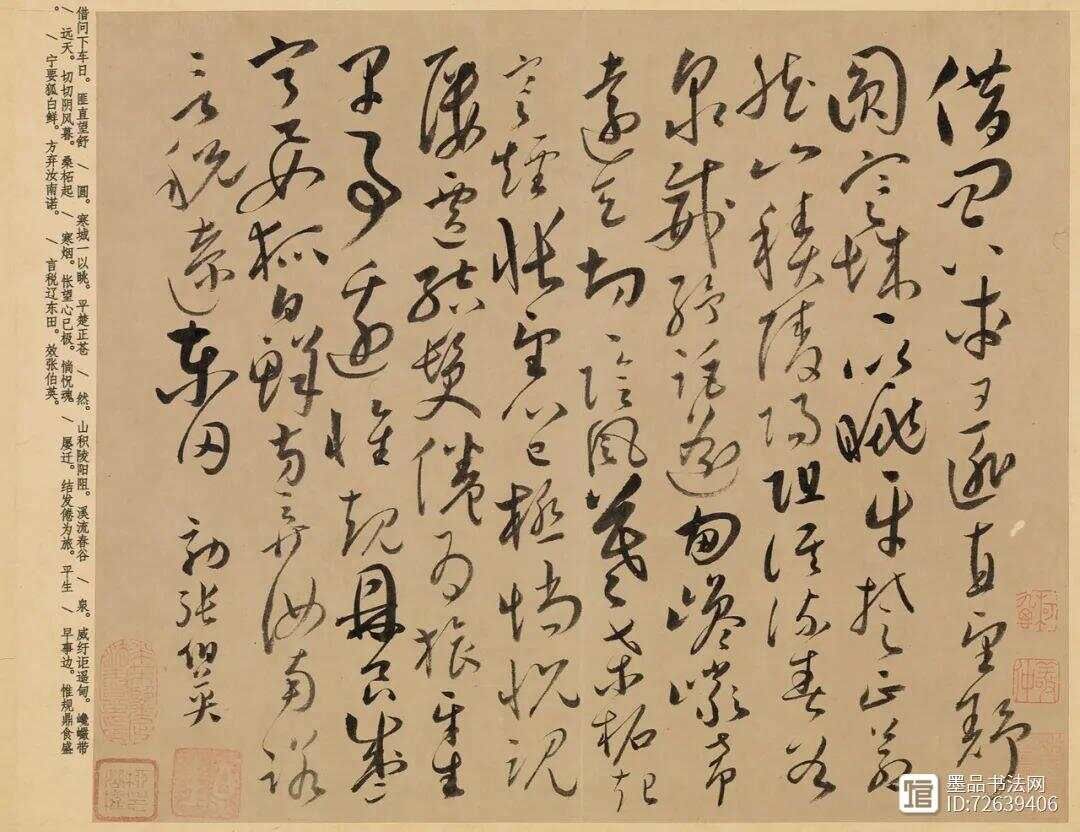 借問下車日匪直望舒
圓寒城一以眺平楚正蒼
然山積陵陽阻溪流春谷
泉威紆詎遙甸巉巗帶
遠天切切陰風暮桑柘起
寒煙悵望心已極惝怳魂
屢遷結髮倦為旅平生
早事邊惟規鼎食盛
寧要狐白鮮方棄汝南諾
言稅遼東田 效張伯英
借问下车日。匪直望舒 / 圓。寒城一以眺。平楚正苍 / 然。山积陵阳阻。溪流春谷 / 泉。威纡讵遥甸。巉巗带
/ 远天。切切阴风暮。桑柘起 / 寒烟。怅望心已极。惝怳魂 / 屡迁。结发倦为旅。平生 / 早事边。惟规鼎食盛
。 / 宁要狐白鲜。方弃汝南诺。 / 言税辽东田。效张伯英。
墨品书法网
ID:72639406